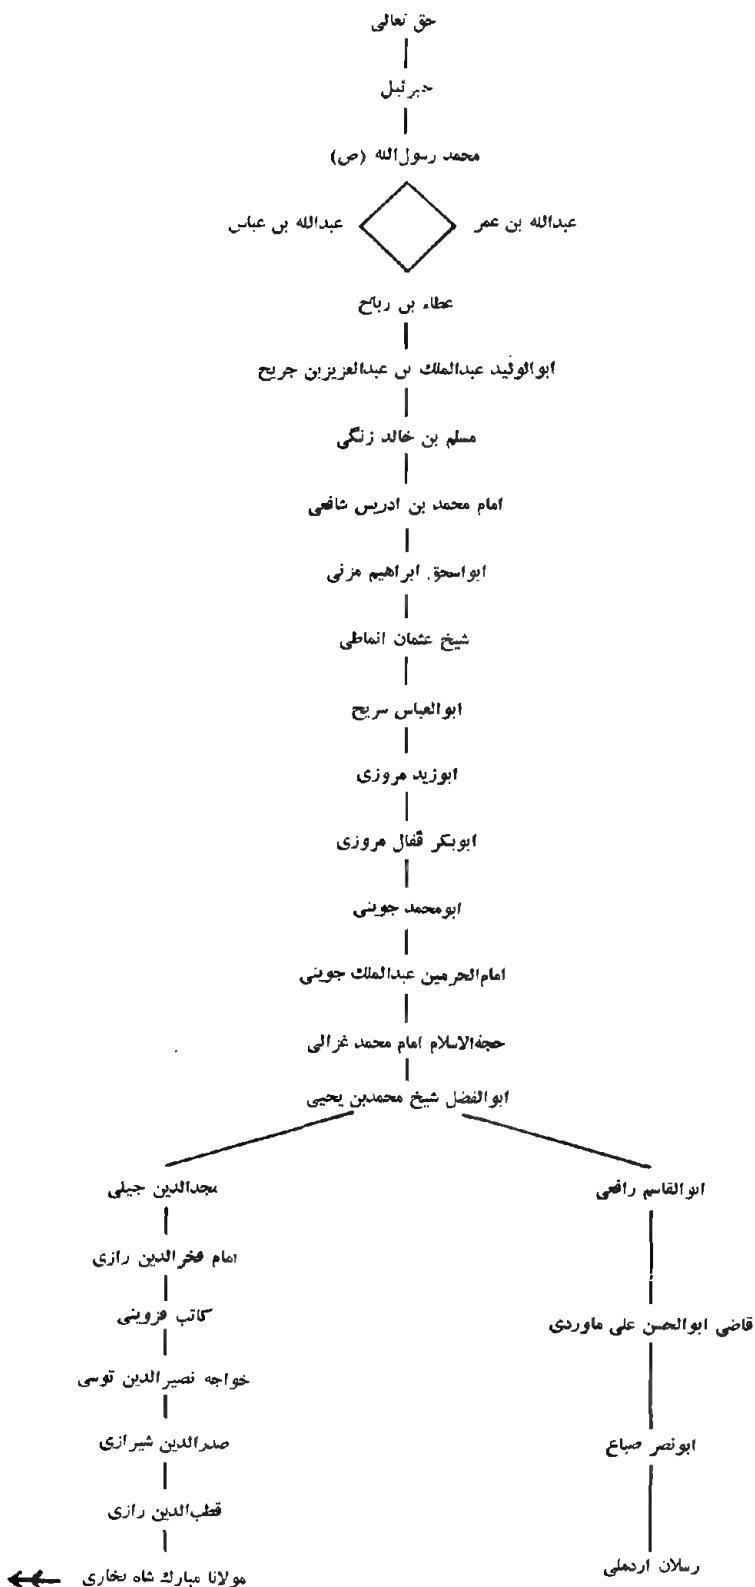 حق تعالی
جبرئیل
محمد رسول‌الله (ص)
عبدالله بن عمر
عبدالله بن عباس
عطاء بن رباح
ابوالولید عبدالملک بن عبدالعزیزبن جریح
مسلم بن خالد زنگی
امام محمد بن ادریس شافعی
ابواسحق ابراهیم مزنی
شیخ عثمان انماطی
ابوالعباس سریح
ابوزید مروزی
ابوبکر قفال مروزی
ابومحمد جوینی
امام‌الحرمین عبدالملک جوینی
حجةالاسلام امام محمد غزالی
ابوالفضل شیخ محمدبن یحیی
ابوالقاسم رافعی
قاضی ابوالحسن علی ماوردی
ابونصر صباع
رسلان اردملی
مجدالدین جیلی
امام فخرالدین رازی
کاتب قزوینی
خواجه نصیرالدین توسی
صدرالدین شیرازی
قطب‌الدین رازی
مولانا مبارک شاه بخاری